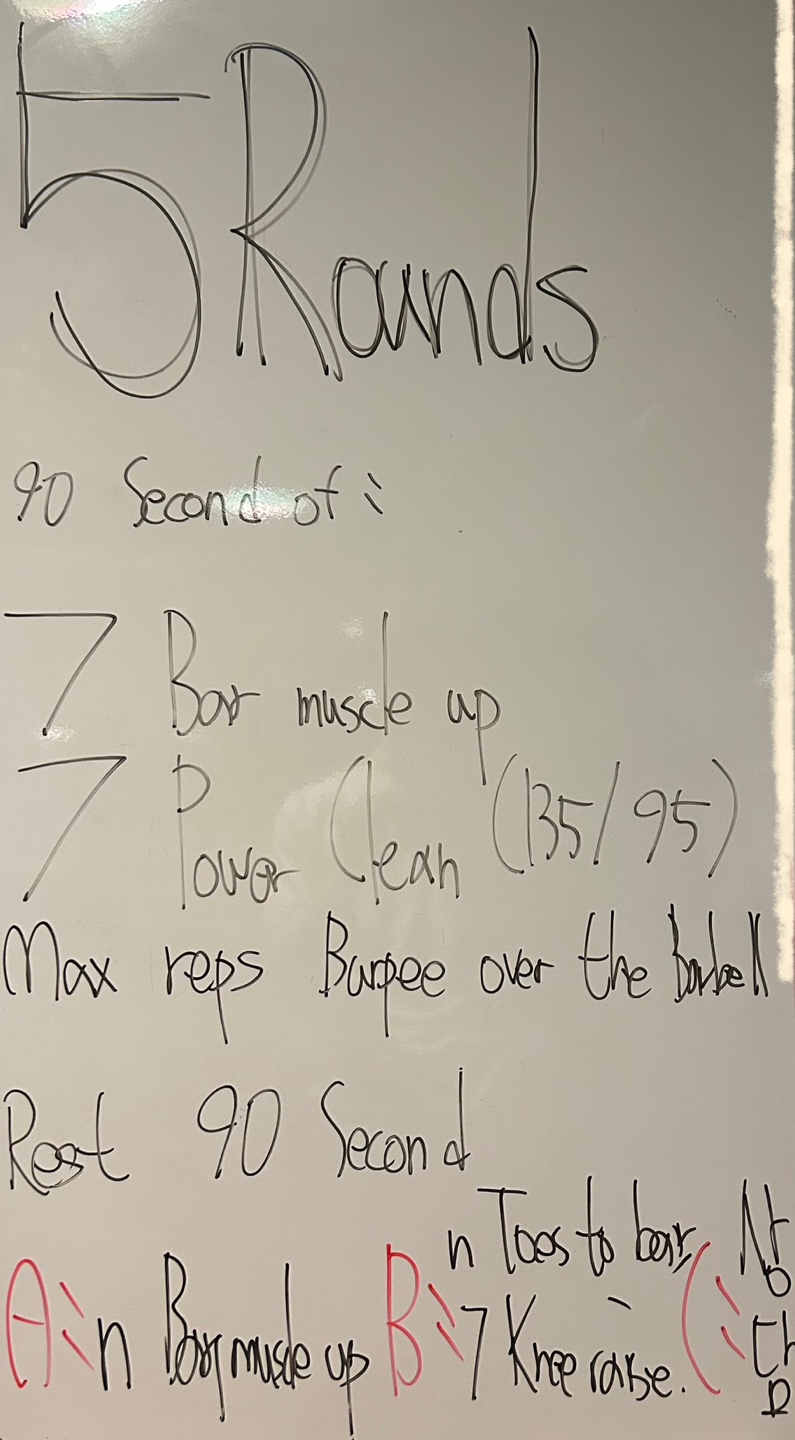 5 Rounds
90 Second of :
7 Bar muscle up
7 Power Clean (135/95)
Max reps Burpee over the Barbell
Rest 90 Second
n Toes to bar,
A: n Bar muscle up B: 7 Knee raise. C: